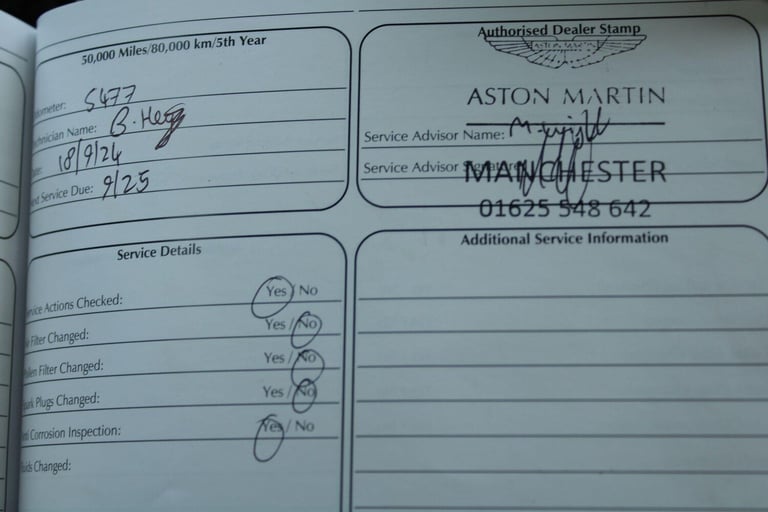 50,000 Miles/80,000 km/5th Year
ometer: 5477
hnician Name: B.
18/9/24
Service Due: 9/25
Authorised Dealer Stamp
ASTON MARTIN
ASTON MARTIN
Service Advisor Name: M.
Service Advisor
MANCHESTER
01625 548 642
Service Details
vice Actions Checked: Yes / No
Filter Changed: Yes / No
llen Filter Changed: Yes / No
ark Plugs Changed: Yes / No
Corrosion Inspection: Yes / No
ids Changed:
Additional Service Information